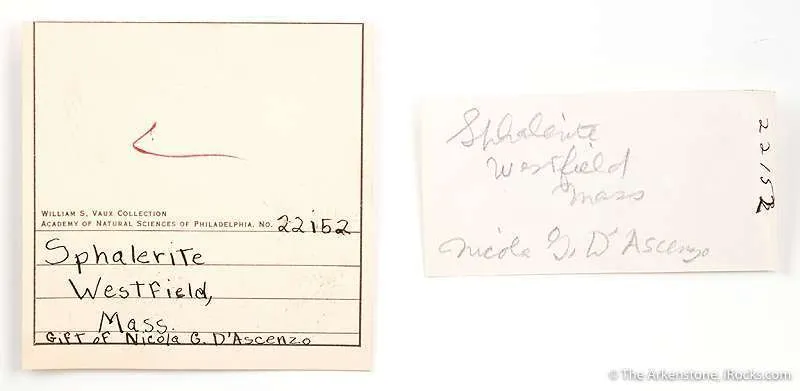 WILLIAM S. VAUX COLLECTION
ACADEMY OF NATURAL SCIENCES OF PHILADELPHIA, NO. 22152
Sphalerite
Westfield,
Mass.
Gift of Nicola G. D'Ascenzo
Sphalerite
Westfield
Mass
Nicola G. D'Ascenzo
22152
© The Arkenstone, iRocks.com